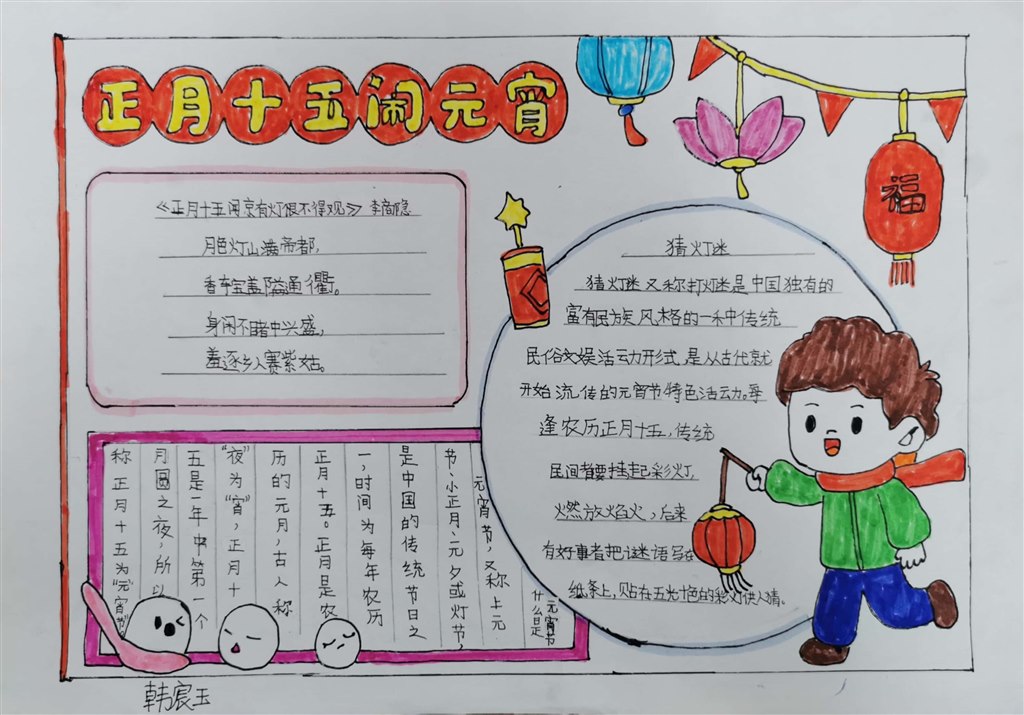 正月十五闹元宵
《正月十五闻京有灯恨不得观》 李商隐
月色灯山满帝都,
香车宝盖隘通衢。
身闲不睹中兴盛,
羞逐乡人赛紫姑。
猜灯迷
猜灯迷又称打灯迷是中国独有的
富有民族风格的一种传统
民俗文娱活动形式,是从古代就
开始流传的元宵节特色活动。每
逢农历正月十五,传统
民间都要挂起彩灯,
燃放焰火,后来
有好事者把谜语写在
纸条上,贴在五光十色的彩灯供人猜。
福
什么是元宵节
元宵节,又称上元
节、小正月、元夕或灯节,
是中国的传统节日之
一,时间为每年农历
正月十五。正月是农
历的元月,古人称
“夜”为“宵”,正月十
五是一年中第一个
月圆之夜,所以
称正月十五为“元宵节”
韩宸玉